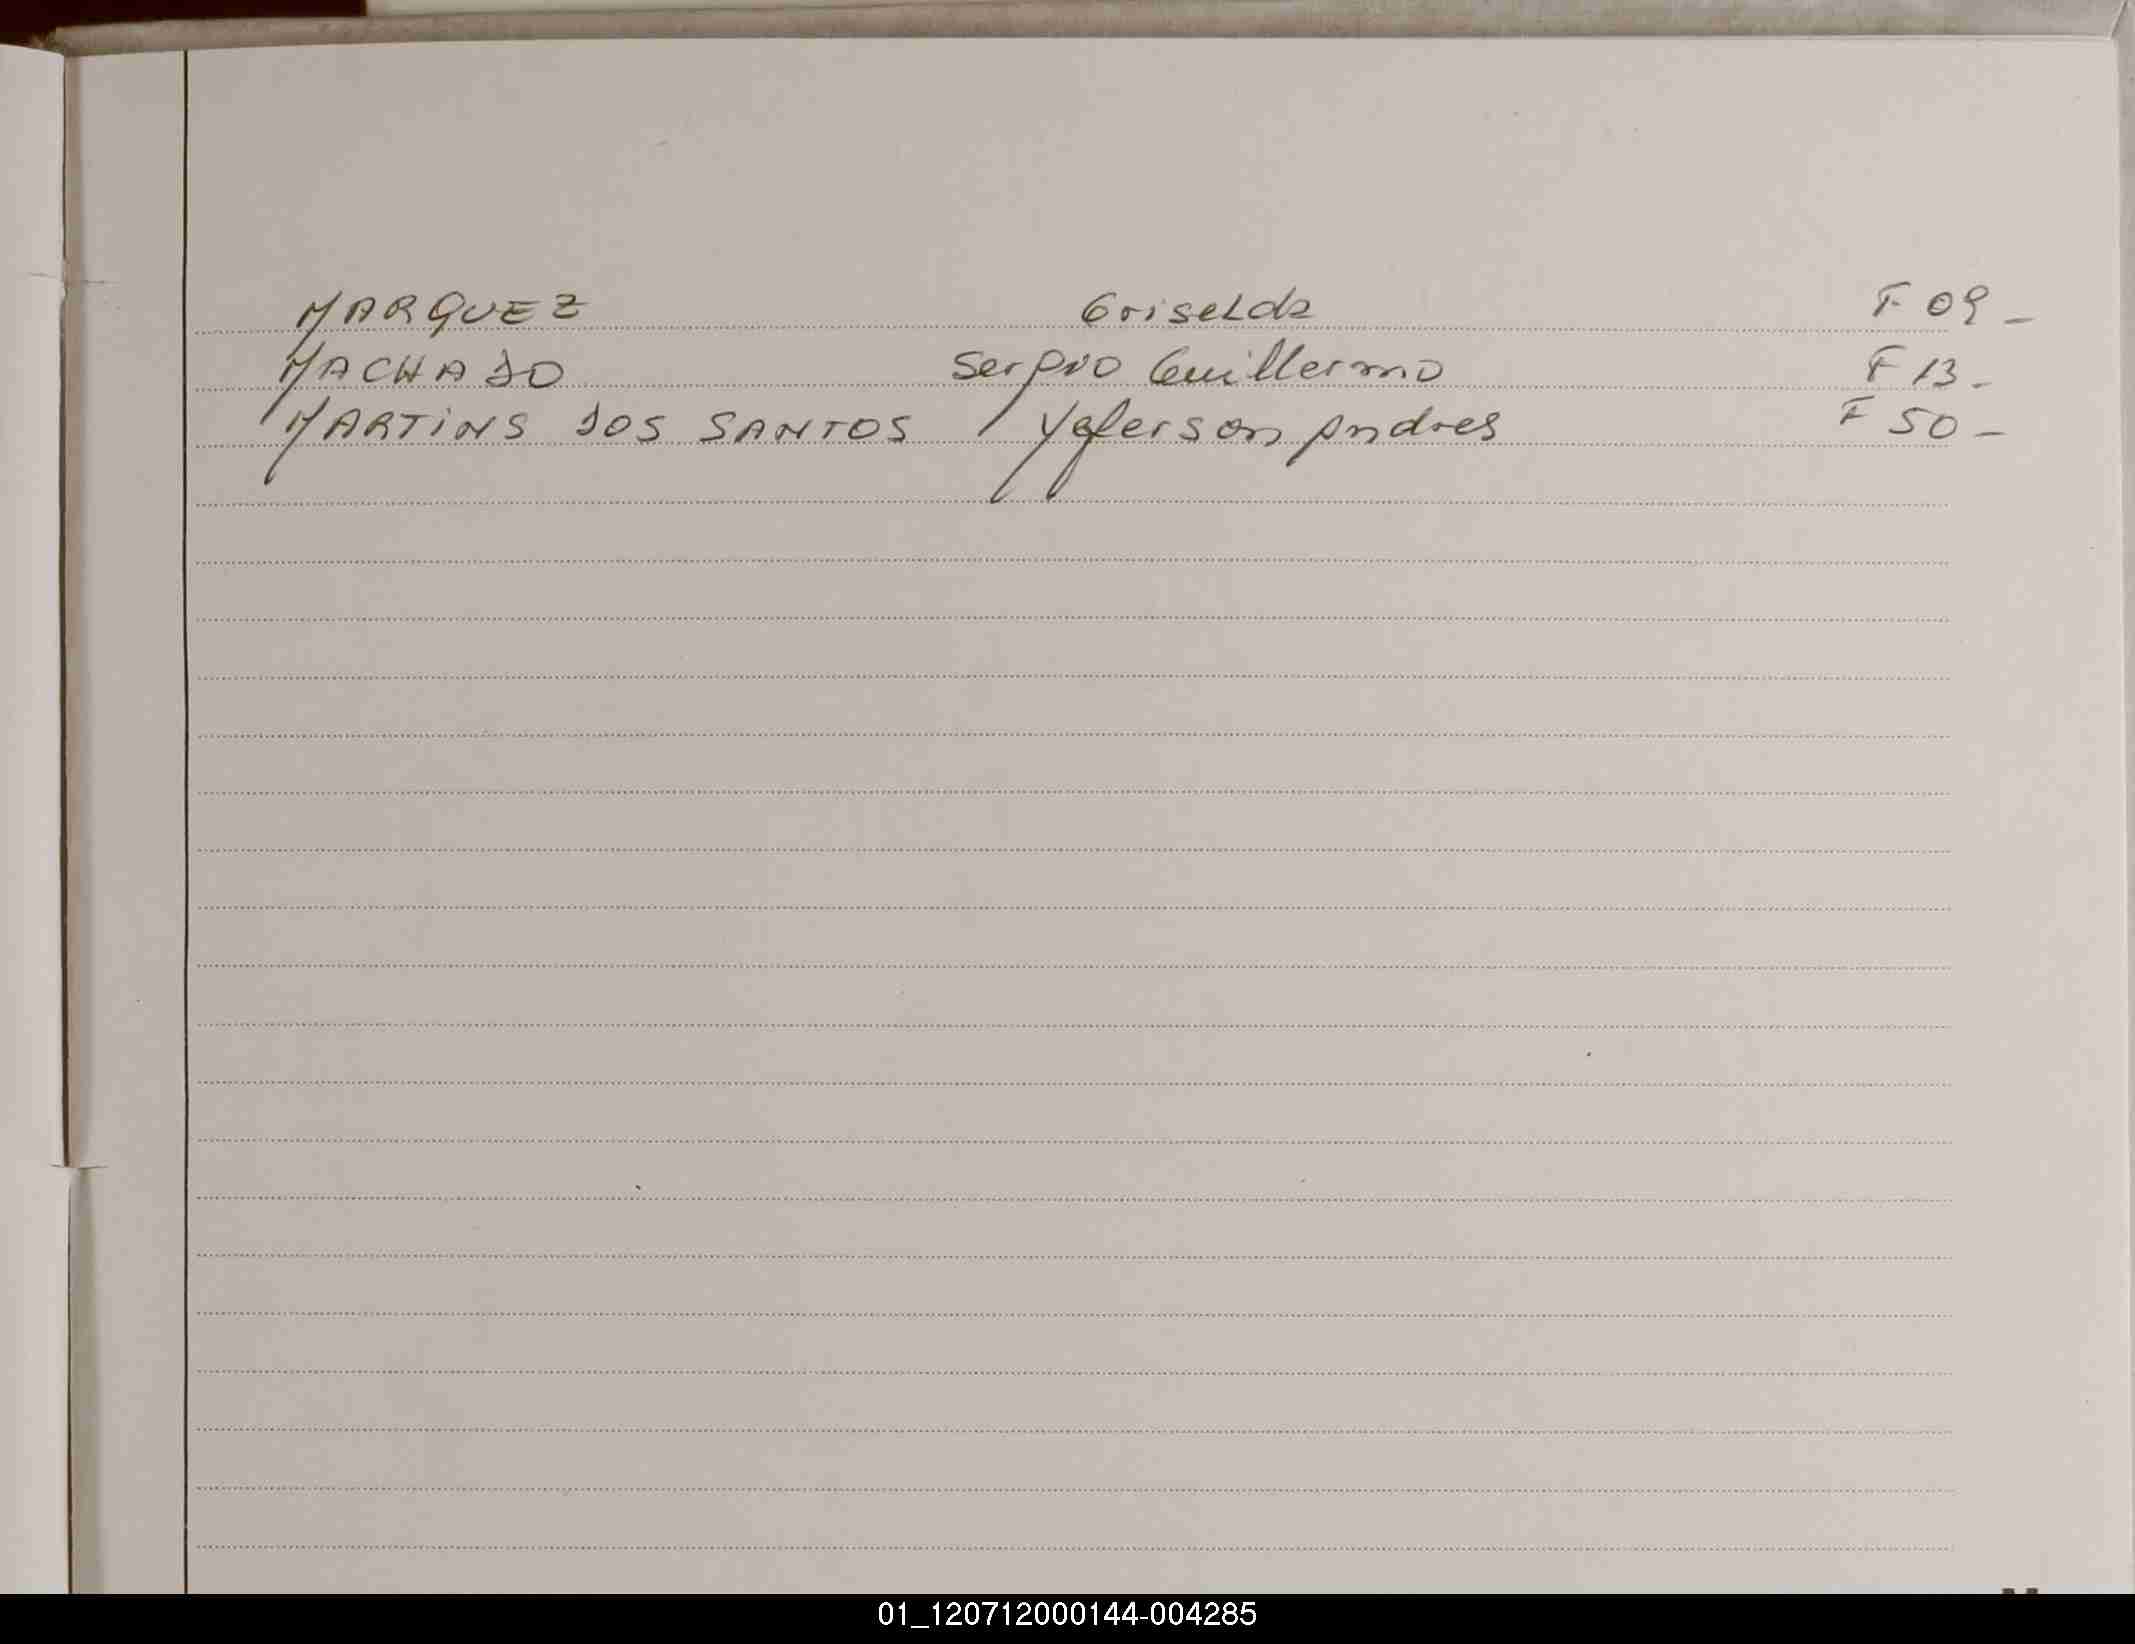 MARQUEZ Griselda F 09 -
MACHADO Sergio Guillermo F 13 -
MARTINS DOS SANTOS Yeferson Andres F 50 -
01_120712000144-004285